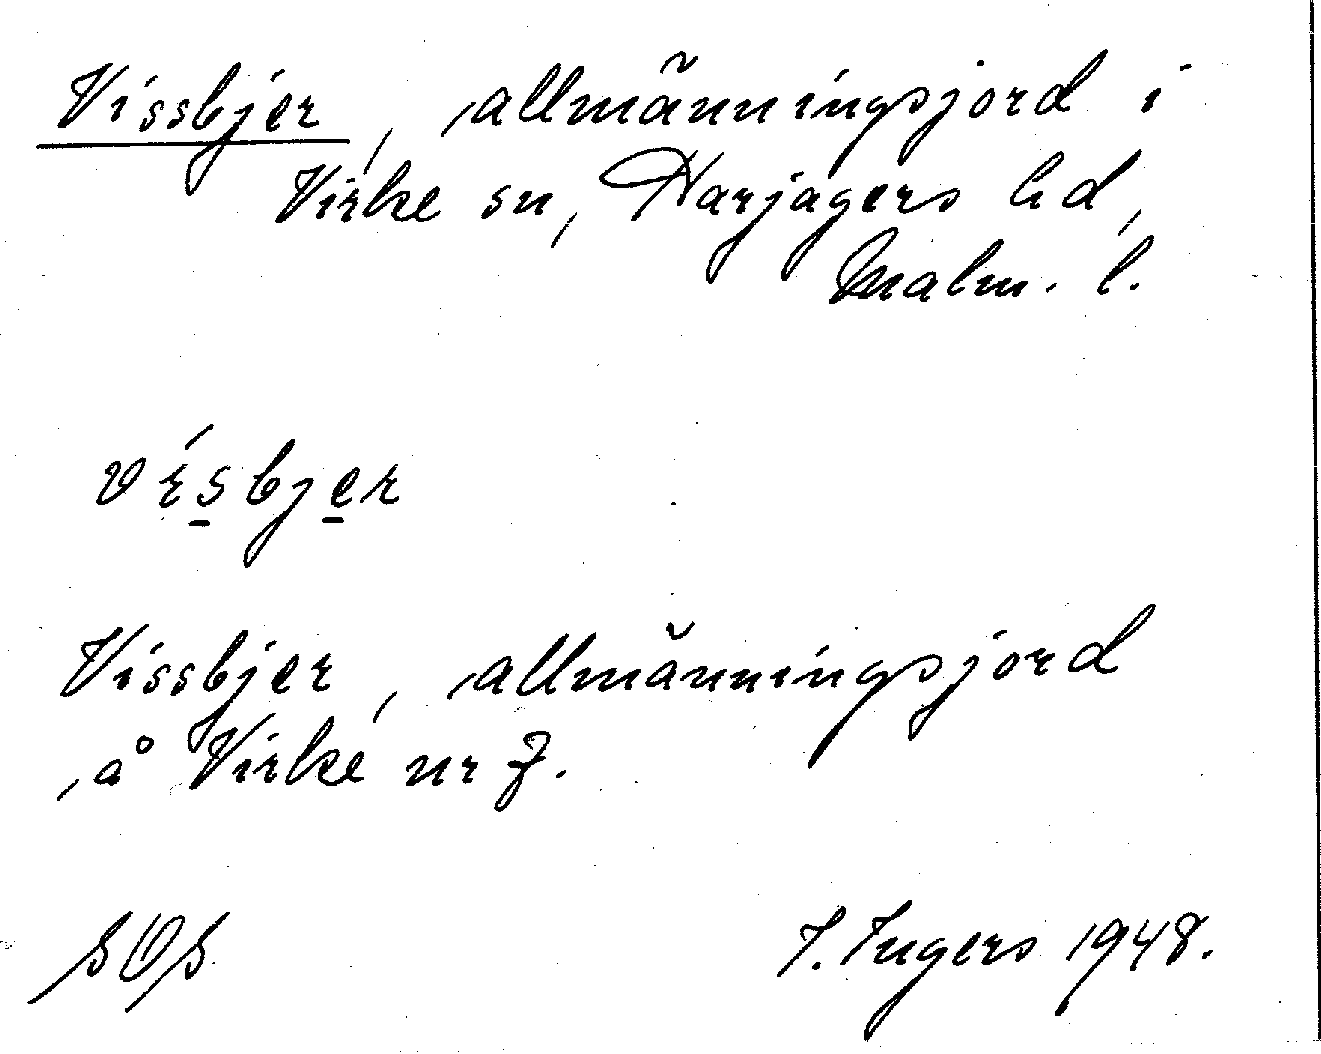 Vissbjer, allmänningsjord i
Virke sn, Harjagers hd,
Malm. l.
vísbjer
Vissbjer, allmänningsjord
å Virke nr 7.
SOS
I. Ingers 1948.